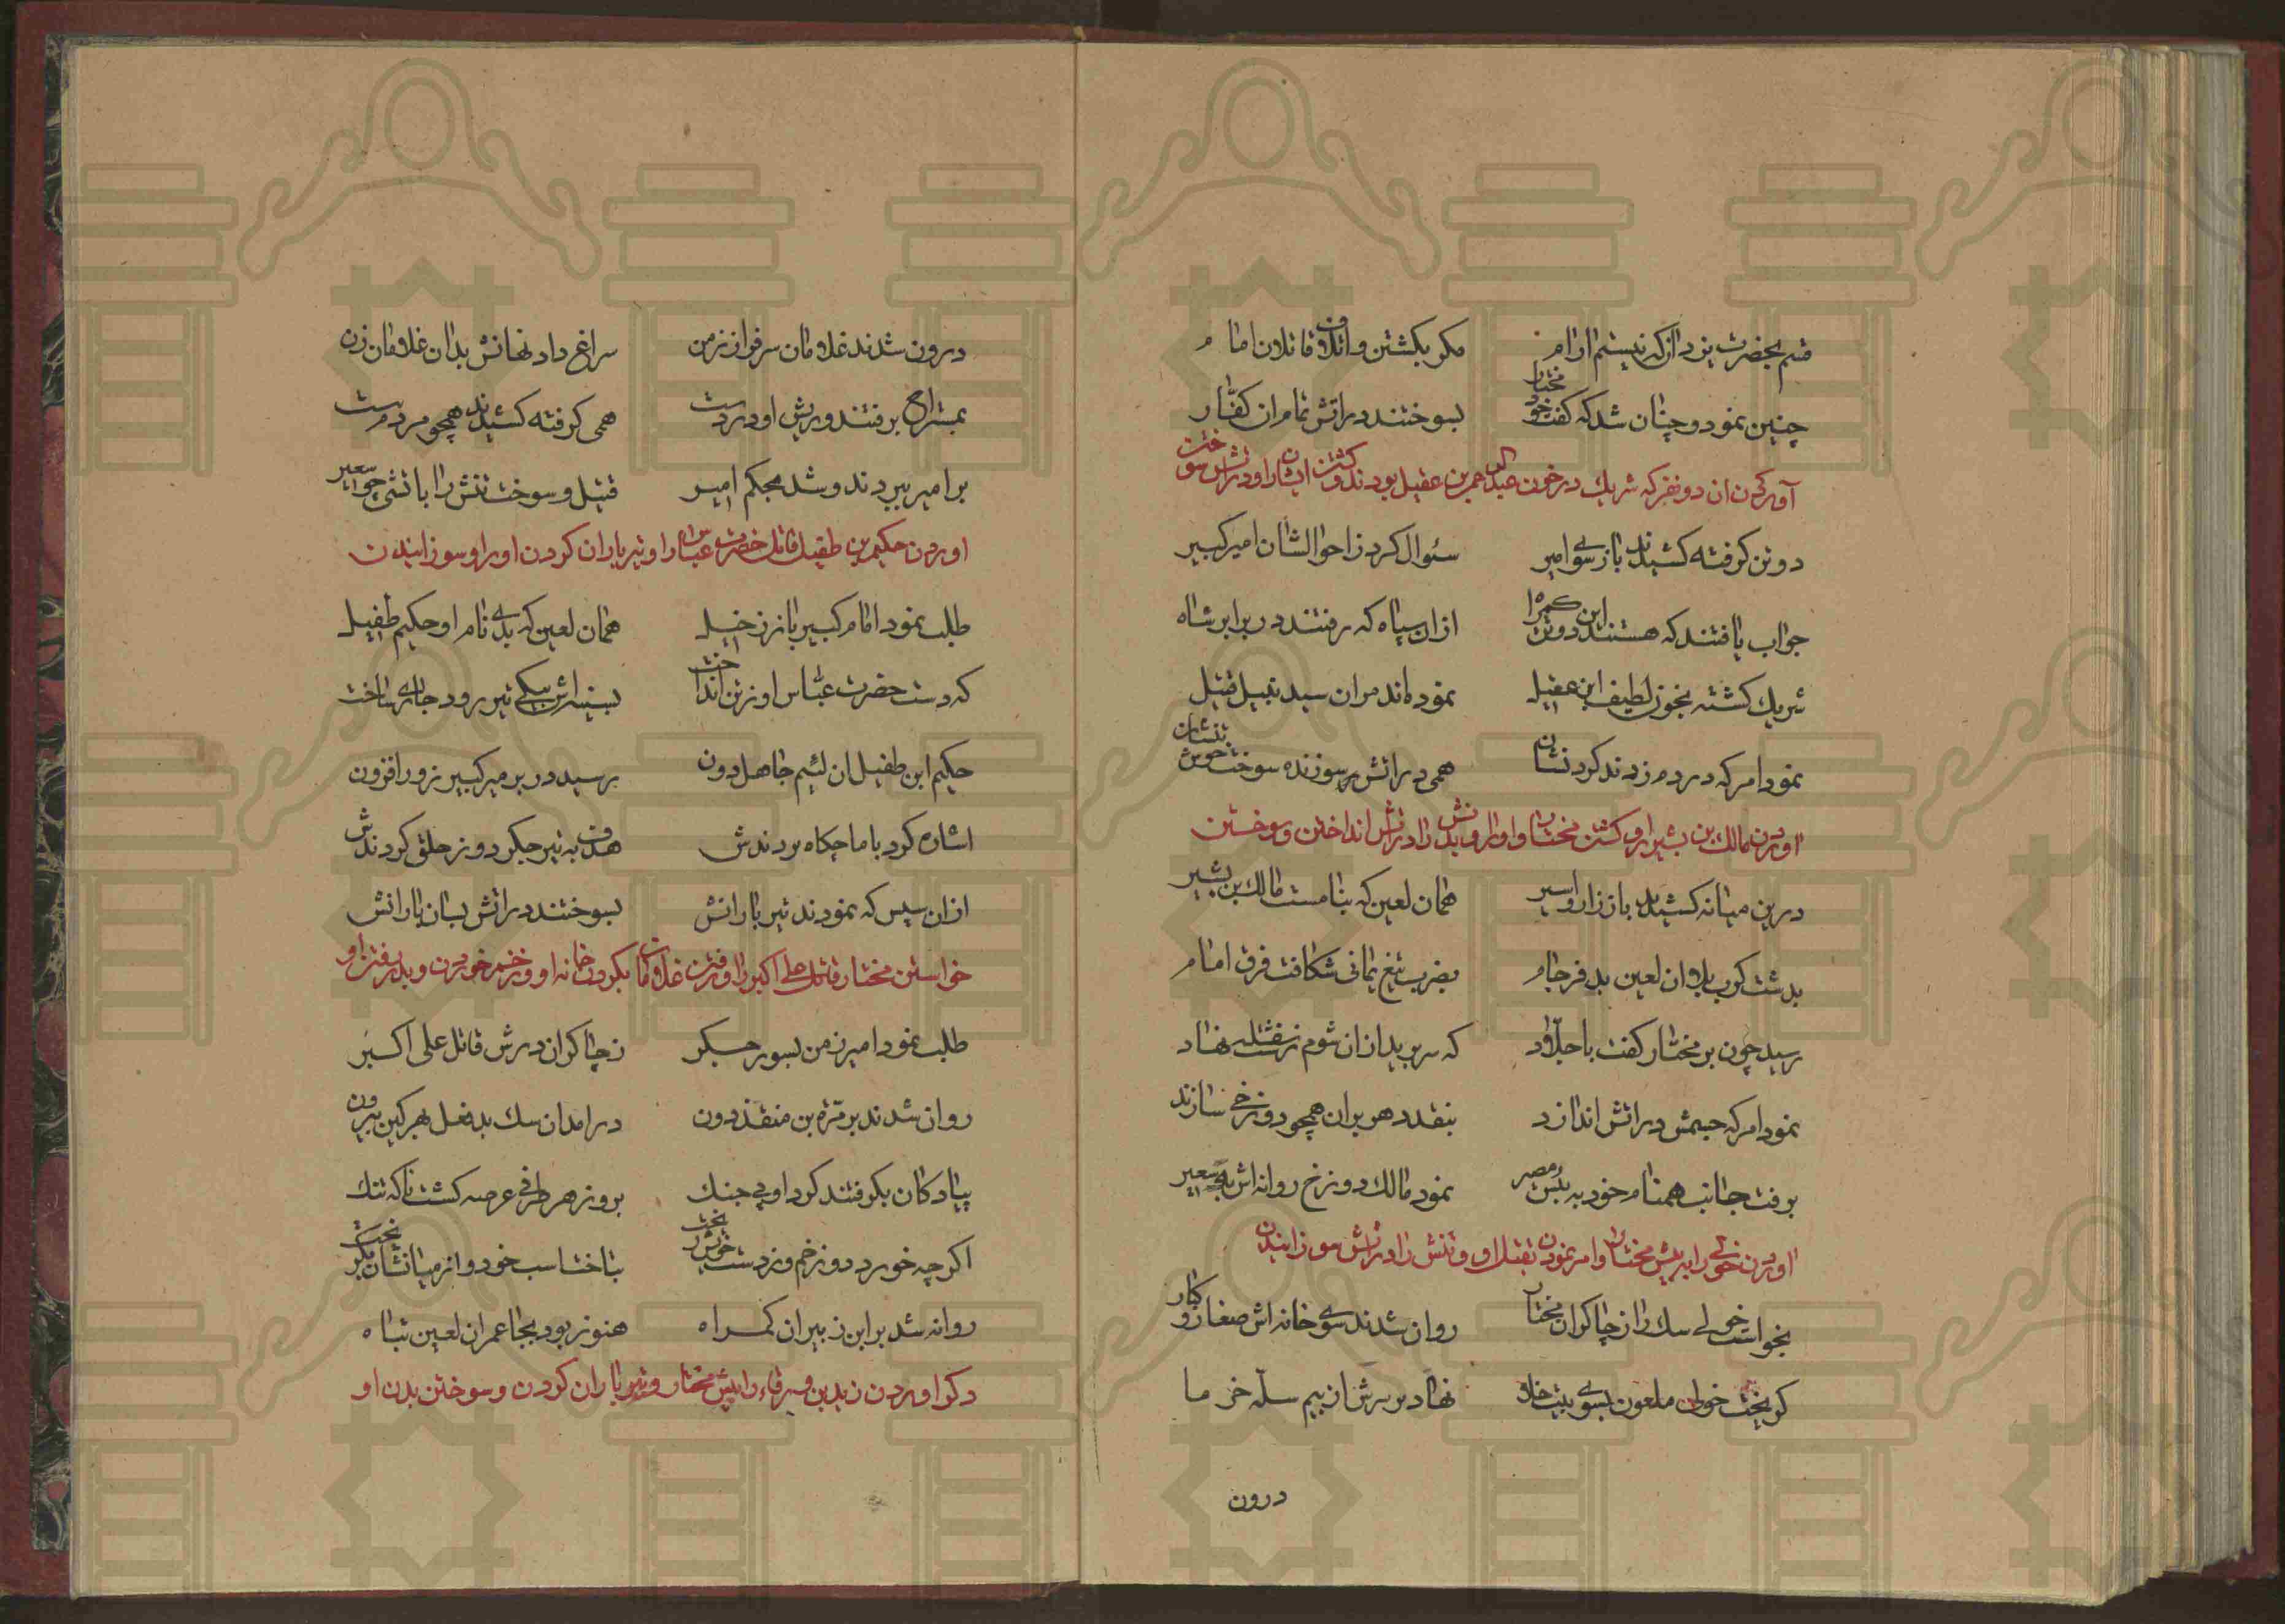 قسم بحضرت یزدان که نیستم ارام مکر بکشتن و اتلاف قاتلان امام
چنین نمود و چنان شد که کفت خود مختار بسوختند در اتش تمام ان کفّار
آوردن ان دو نفر که شریك در خون عبدالرحمن عقیل بودند و کشتن ایشان را و در اتش سوختن
دو تن کرفته کشیدند باز سوی امیر سئوال کرد ز احوالشان امیر کبیر
جواب یافتند که هستند این دو تن کمراه ازان سپاه که رفتند در برابر شاه
شریك کشته بخون لطیف ابن عقیل نموده‌اند مران سید نبیل قتیل
نمود امر که در دم زدند کردنشان همی در اتش سوزنده سوخت تنشان
اوردن مالك بن بشیر را و کشتن مختار او را و بدنش را در اتش انداختن و سوختن
درین میانه کشیدند باز زار و اسیر همان لعین که بنامست مالك بن بشیر
بدشت کرب بلا ان لعین بد فرجام بضرب تیغ یمانی شکافت فرق امام
رسید چون بر مختار کفت با جلّاد که سر ببر
نمود امر که جسمش در اتش اندازد بنقد دهر بران همچو دوزخی سازند
برفت جانب همنام خود به بئس مصیر نمود مالك دوزخ روانه‌اش سعیر
اوردن خولی را پیش مختار و امر نمودن بقتل او و تنش را در اتش سوزانیدن
بخواست خولی سك را ز چاکران مختار روان شدند سوی خانه‌اش صغار و کبار
کریخت خولی ملعون بسوی بیت خلا نهاد بر سرش از بیم سلّه خرما
درون
درون شدند غلامان سرفراز زمن سراغ داد نهانش بدان غلامان زن
بمستراح برفتند و ریش او در دست همی کرفته کشیدند همچو مردم مست
بر امیر ببردند و شد بحکم امیر قتیل و سوخت تنش را باتشی چو سعیر
اوردن حکیم بن طفیل قاتل حضرت عبّاس را و تیر باران کردن او را و سوزانیدن
طلب نمود امام کبیر باز ز خیل همان لعین که بدی نام او حکیم طفیل
که دست حضرت عبّاس او ز تن انداخت بسینه‌اش یکی تیر رود جاری ساخت
حکیم ابن طفیل ان لئیم جاهل دون رسید در بر میر کبیر زور افزون
اشاره کرد باماجکاه بردندش هدف به تیر جکردوز حلق کردندش
ازان سپس که نمودند تیر بارانش بسوختند در اتش بسان یارانش
خواستن مختار قاتل علی اکبر را و رفتن غلامان بکرد خانه او و زخم خوردن و بدر رفتن او
طلب نمود امیر زمن بسور جکر ز چاکران درش قاتل علی اکبر
روان شدند بر مرّه بن منقذ دون در امد ان سك بد فعل بهر کین بیرون
پیادکان بکرفتند کرد او پی جنك برو ز هر طرفی عرصه کشت ناکه تنك
اکرچه خورد دو زخم و ز دست بتاخت اسب خود و از میانشان بکریخت
روانه شد بر ابن زبیر ان کمراه هنوز بود بجا عمر ان لعین تباه
ذکر اوردن زید بن ورقاء را پیش مختار و تیر باران کردن و سوختن بدن او